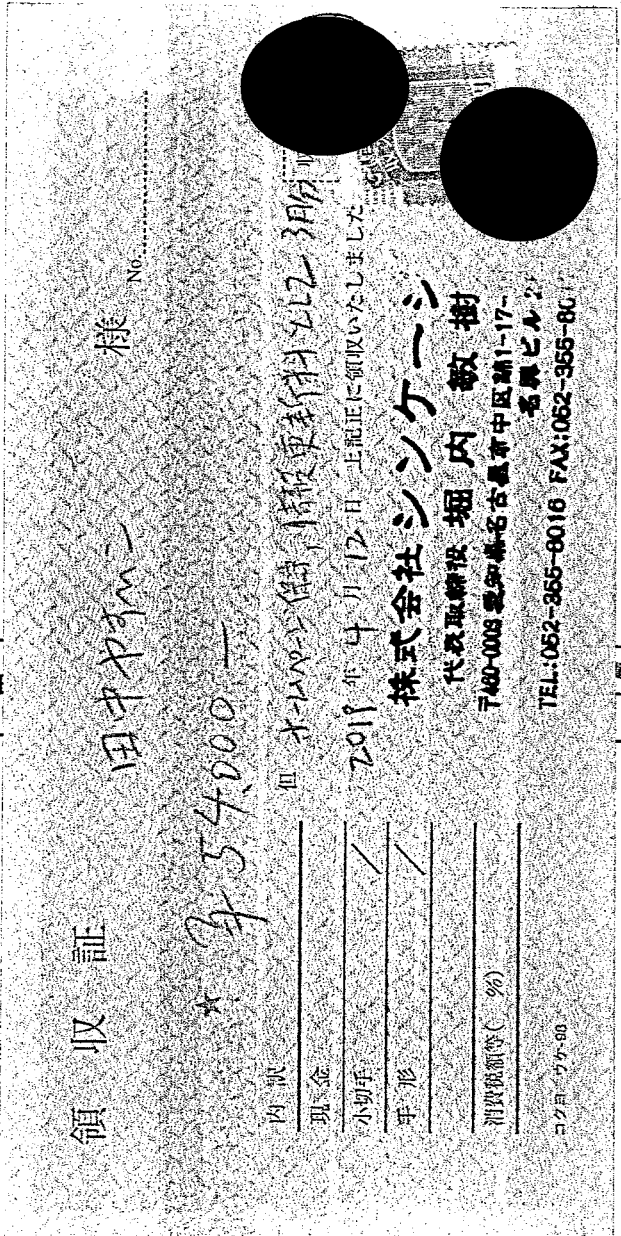 領収証
田中やすい 様 No.
★ ¥54,000 —
但 ホームページ保守、情報更新料として 3月分
2019年 4月 12日 上記正に領収いたしました
内訳
現金
小切手 /
手形 /
消費税額等( %)
コクヨ ウケ-98
株式会社シンケーシ
代表取締役 堀内 敏樹
〒460-0003 愛知県名古屋市中区錦1-17-
名興ビル2
TEL:052-355-8016 FAX:052-355-80